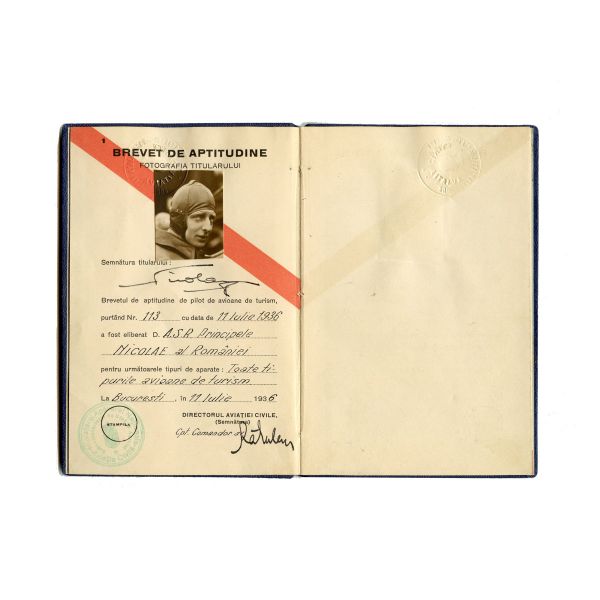 1
BREVET DE APTITUDINE
FOTOGRAFIA TITULARULUI
Semnătura titularului :
Nicolae
Brevetul de aptitudine de pilot de avioane de turism,
purtând Nr. 113 cu data de 11 Iulie 1936
a fost eliberat D. A.S.R. Principele
NICOLAE al României
pentru următoarele tipuri de aparate : Toate ti-
purile avioane de turism
La Bucuresti, în 11 Iulie 1936
DIRECTORUL AVIAȚIEI CIVILE,
(Semnătura)
STAMPILA
Cpt. Comandor av.